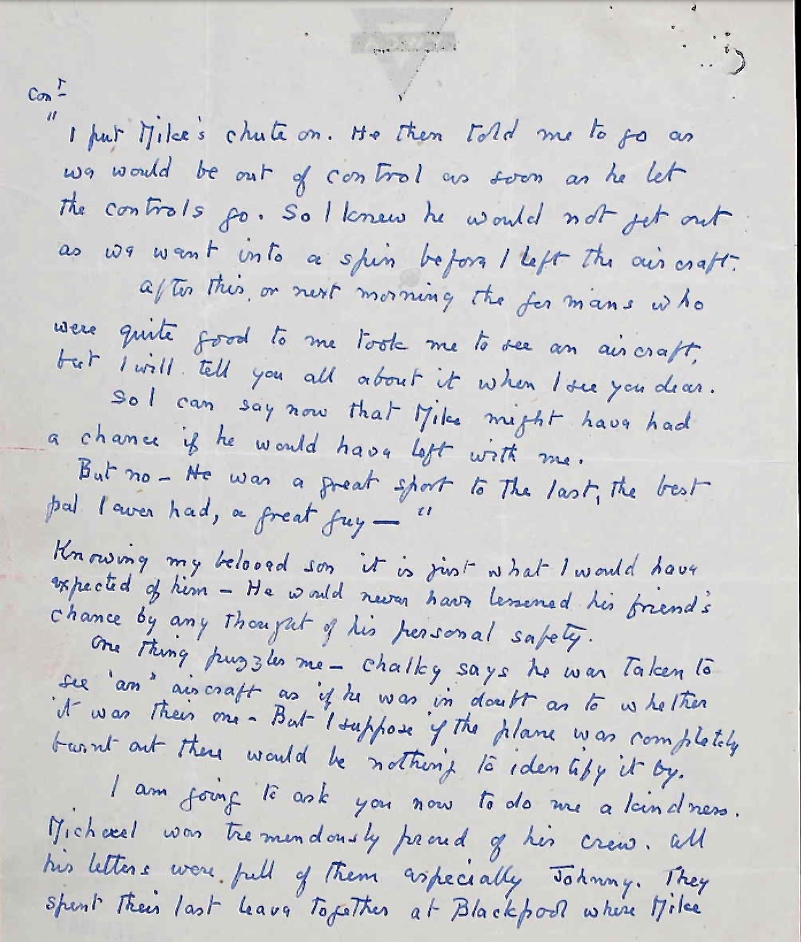 Cont
"I put Mike's chute on. He then told me to go as
we would be out of control as soon as he let
the controls go. So I knew he would not get out
as we went into a spin before I left the aircraft.
After this, or next morning the Germans who
were quite good to me took me to see an aircraft,
but I will tell you all about it when I see you dear.
So I can say now that Mike might have had
a chance if he would have left with me.
But no – He was a great sport to the last, the best
pal I ever had, a great guy — "
Knowing my beloved son it is just what I would have
expected of him – He would never have lessened his friend's
chance by any thought of his personal safety.
One thing puzzles me – Chalky says he was taken to
see "an" aircraft as if he was in doubt as to whether
it was their one – But I suppose if the plane was completely
burnt out there would be nothing to identify it by.
I am going to ask you now to do me a kindness.
Michael was tremendously proud of his crew. All
his letters were full of them especially Johnny. They
spent their last leave together at Blackpool where Mike